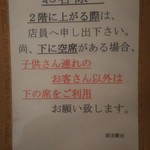 ２階に上がる際は、
店員へ申し出下さい。
尚、下に空席がある場合、
子供さん連れの
お客さん以外は
下の席をご利用
お願い致します。